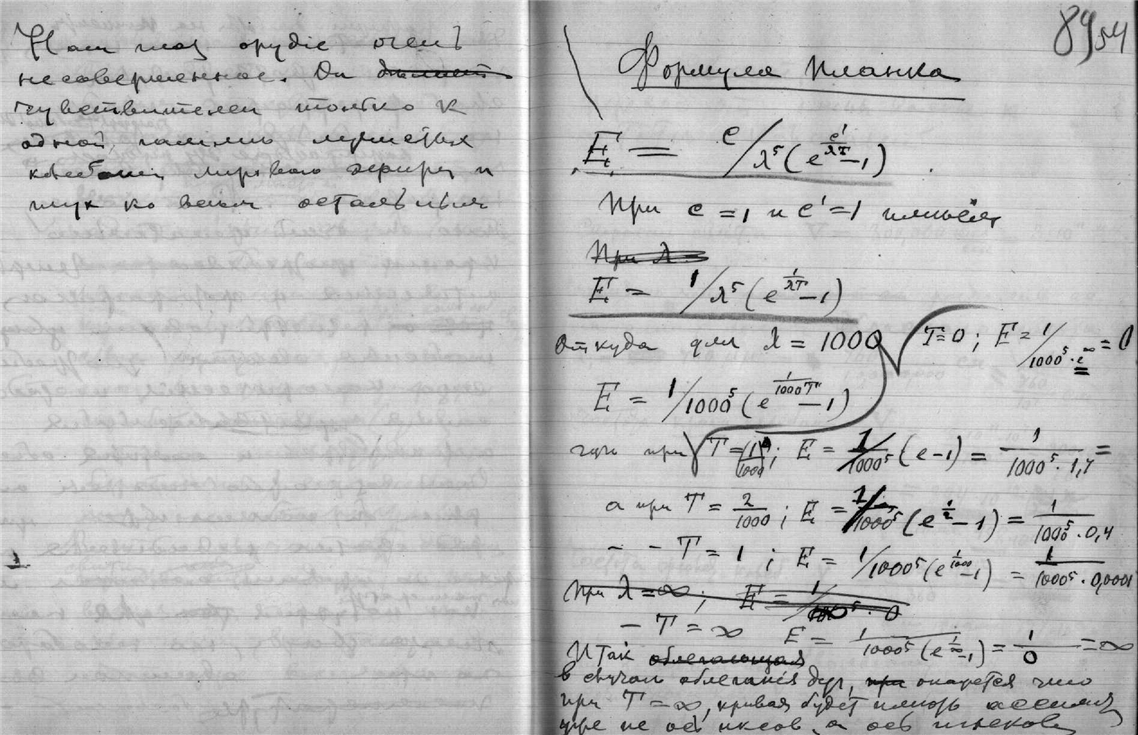 Наш глаз орудіе очень
несовершенное. Он
чувствителен только к
одной, гаммы лучистых
колебаний мирового эфира и
глух ко всем остальным
89 54
Формула Планка
E = c/λ⁵(e^(c'/λT)-1)
При c=1 и c'=1 имеем
При λ
E = 1/λ⁵(e^(1/λT)-1)
откуда для λ = 1000
T=0; E=1/1000⁵·e^∞=0
E = 1/1000⁵(e^(1/1000T)-1)
где при T=1/1000; E=1/1000⁵(e-1) = 1/1000⁵·1,7 =
а при T = 2/1000; E=1/1000⁵(e^(1/2)-1) = 1/1000⁵·0,4
- - T = 1; E = 1/1000⁵(e^(1/1000)-1) = 1/1000⁵·0,0001
при λ=∞; E = 1/1000⁵·0
- T = ∞ E = 1/1000⁵(e^(1/∞)-1) = 1/0 = ∞
Итак
в случае при окажется что
при T=∞, кривая будет иметь
не ось иксов, а ось игреков